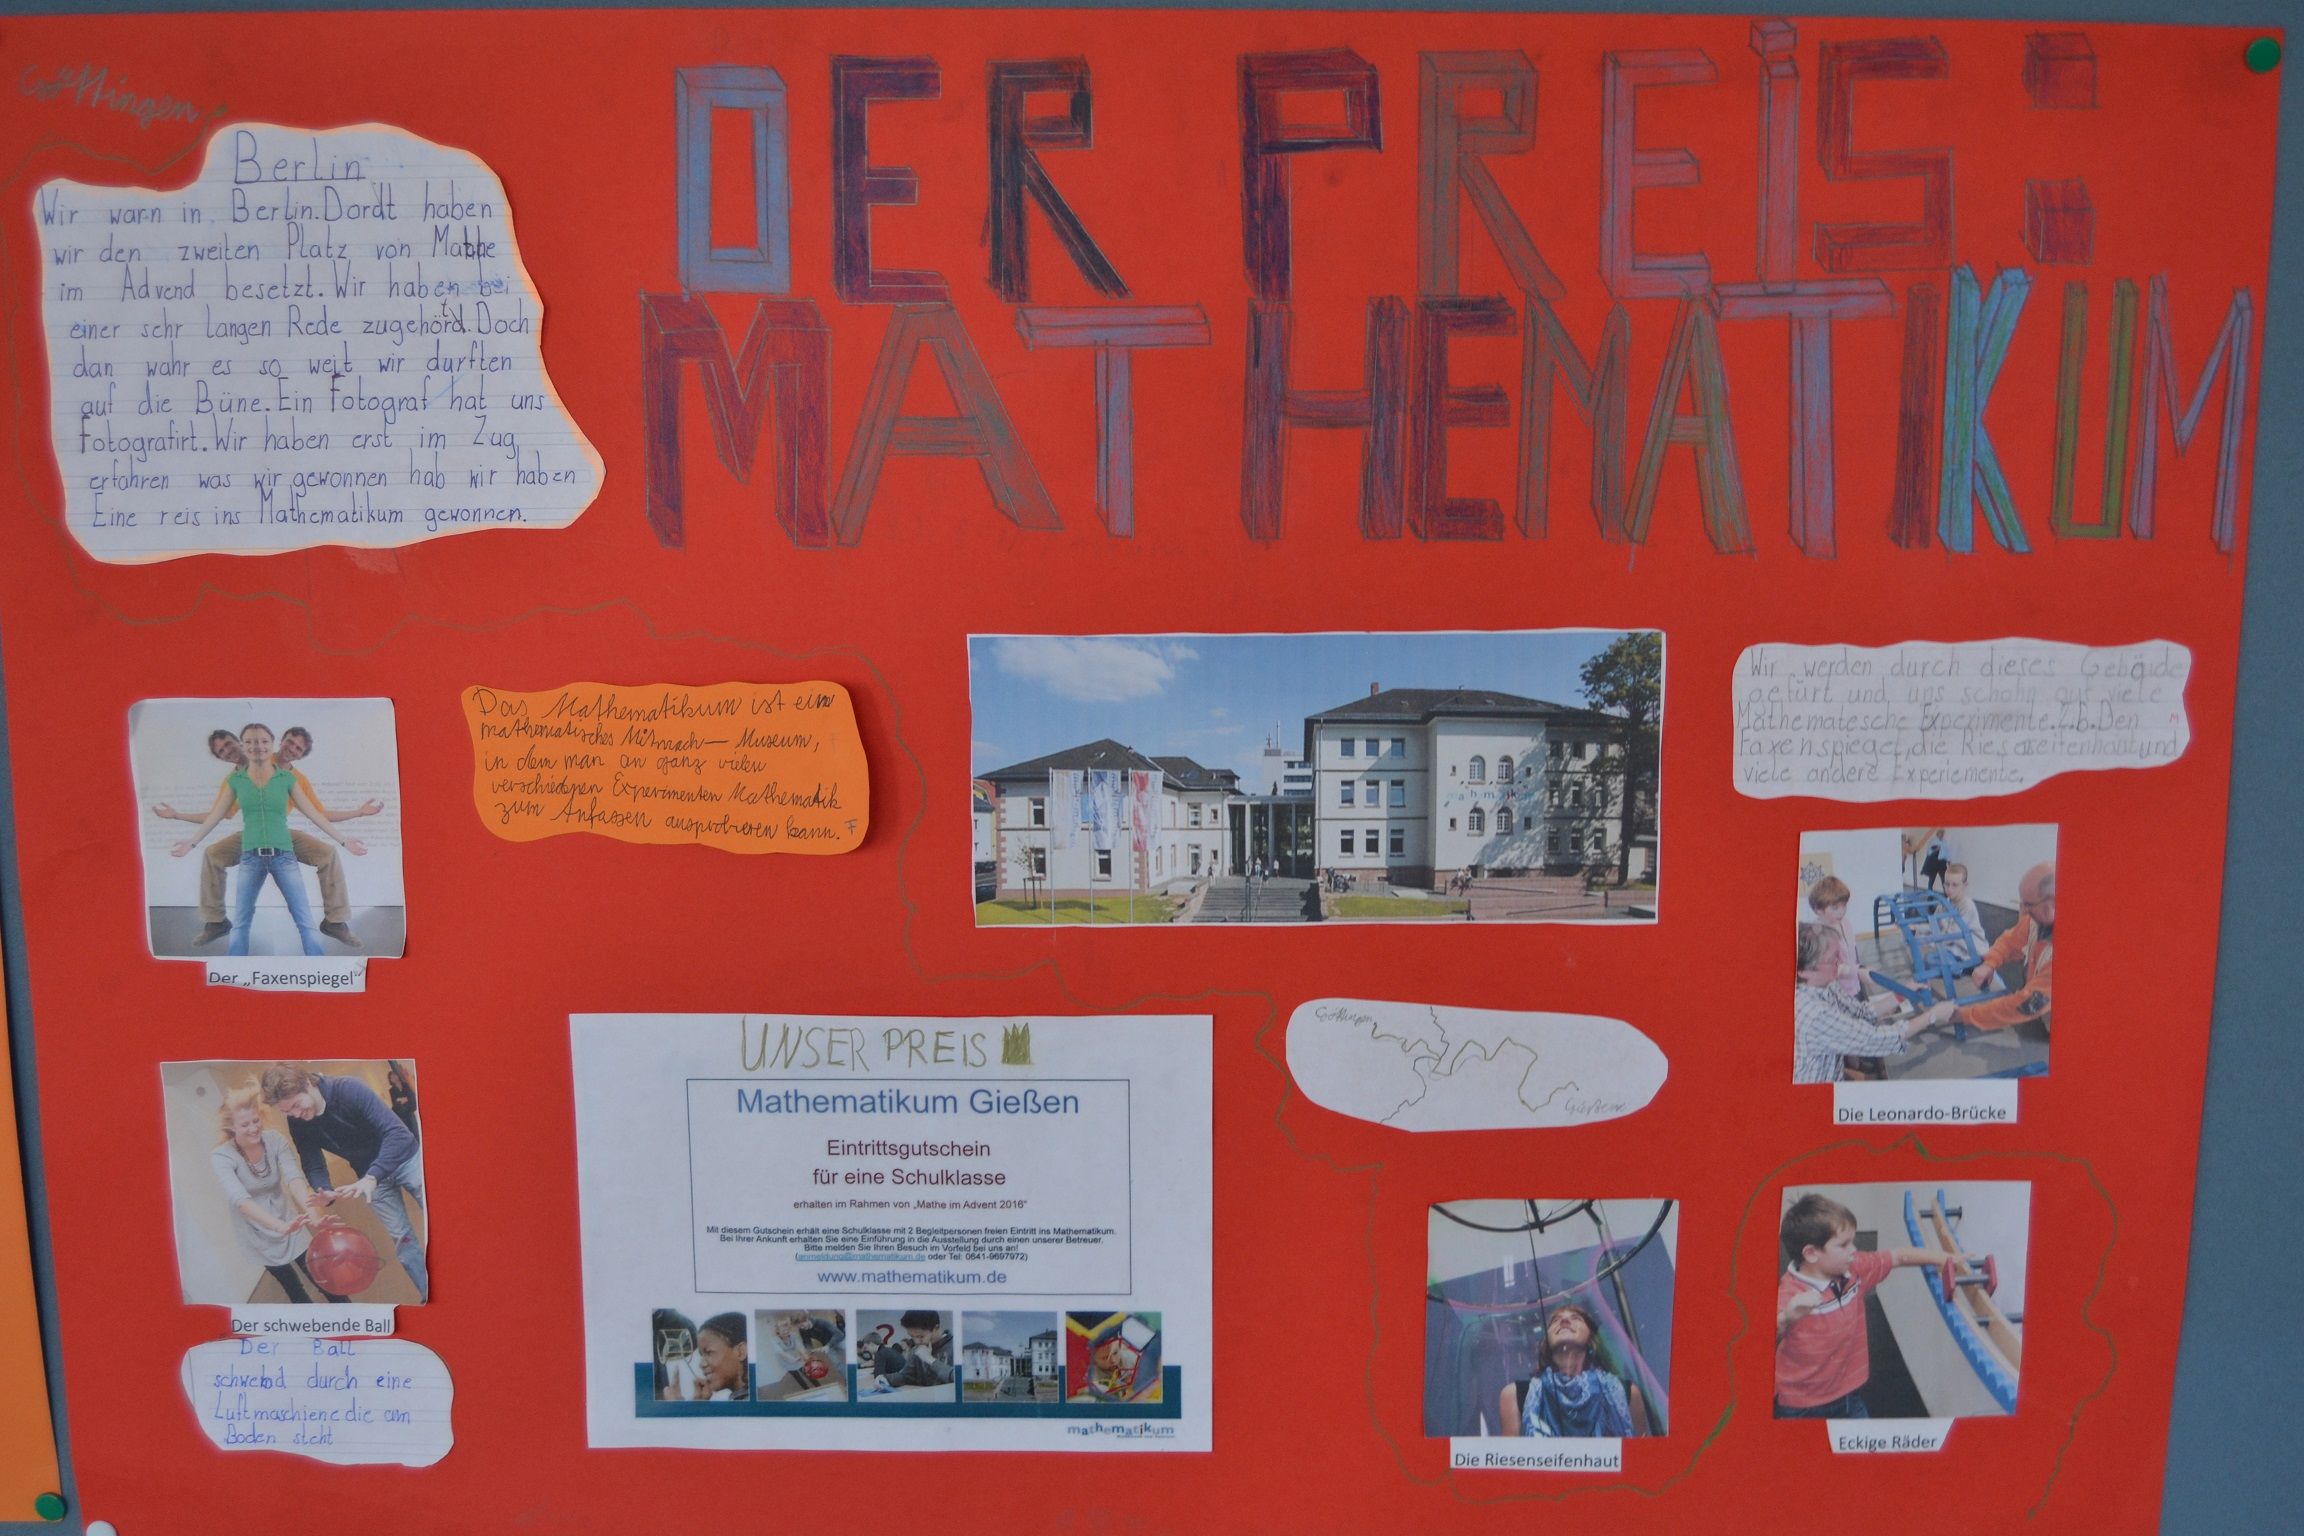 Göttingen
DER PREiS:
MATHEMATIKUM
Berlin
Wir warn in Berlin. Dordt haben
wir den zweiten Platz von Mathe
im Advend besetzt. Wir haben bei
einer sehr langen Rede zugehört. Doch
dan wahr es so weit wir durften
auf die Büne. Ein Fotograf hat uns
fotografirt. Wir haben erst im Zug
erfahren was wir gewonnen hab wir haben
Eine reis ins Mathematikum gewonnen.
Das Mathematikum ist ein
mathematisches Mitmach-Museum,
in dem man an ganz vielen
verschiednen Experimenten Mathematik
zum Anfassen ausprobieren kann. F
Wir werden durch dieses Gebäude
gefürt und uns schohn auf viele
Mathematesche Experimente. Z.b. Den
Faxenspiegel, die Riesaseifenhaut und
viele andere Experiemente.
mathematikum
Der „Faxenspiegel“
Der schwebende Ball
Der Ball
schwebd durch eine
Luftmaschiene die am
Boden steht
UNSER PREIS
Mathematikum Gießen
Eintrittsgutschein
für eine Schulklasse
erhalten im Rahmen von „Mathe im Advent 2016“
Mit diesem Gutschein erhält eine Schulklasse mit 2 Begleitpersonen freien Eintritt ins Mathematikum.
Bei Ihrer Ankunft erhalten Sie eine Einführung in die Ausstellung durch einen unserer Betreuer.
Bitte melden Sie Ihren Besuch im Vorfeld bei uns an!
(anmeldung@mathematikum.de oder Tel: 0641-9697972)
www.mathematikum.de
mathematikum
Göttingen
Gießen
Die Leonardo-Brücke
Die Riesenseifenhaut
Eckige Räder